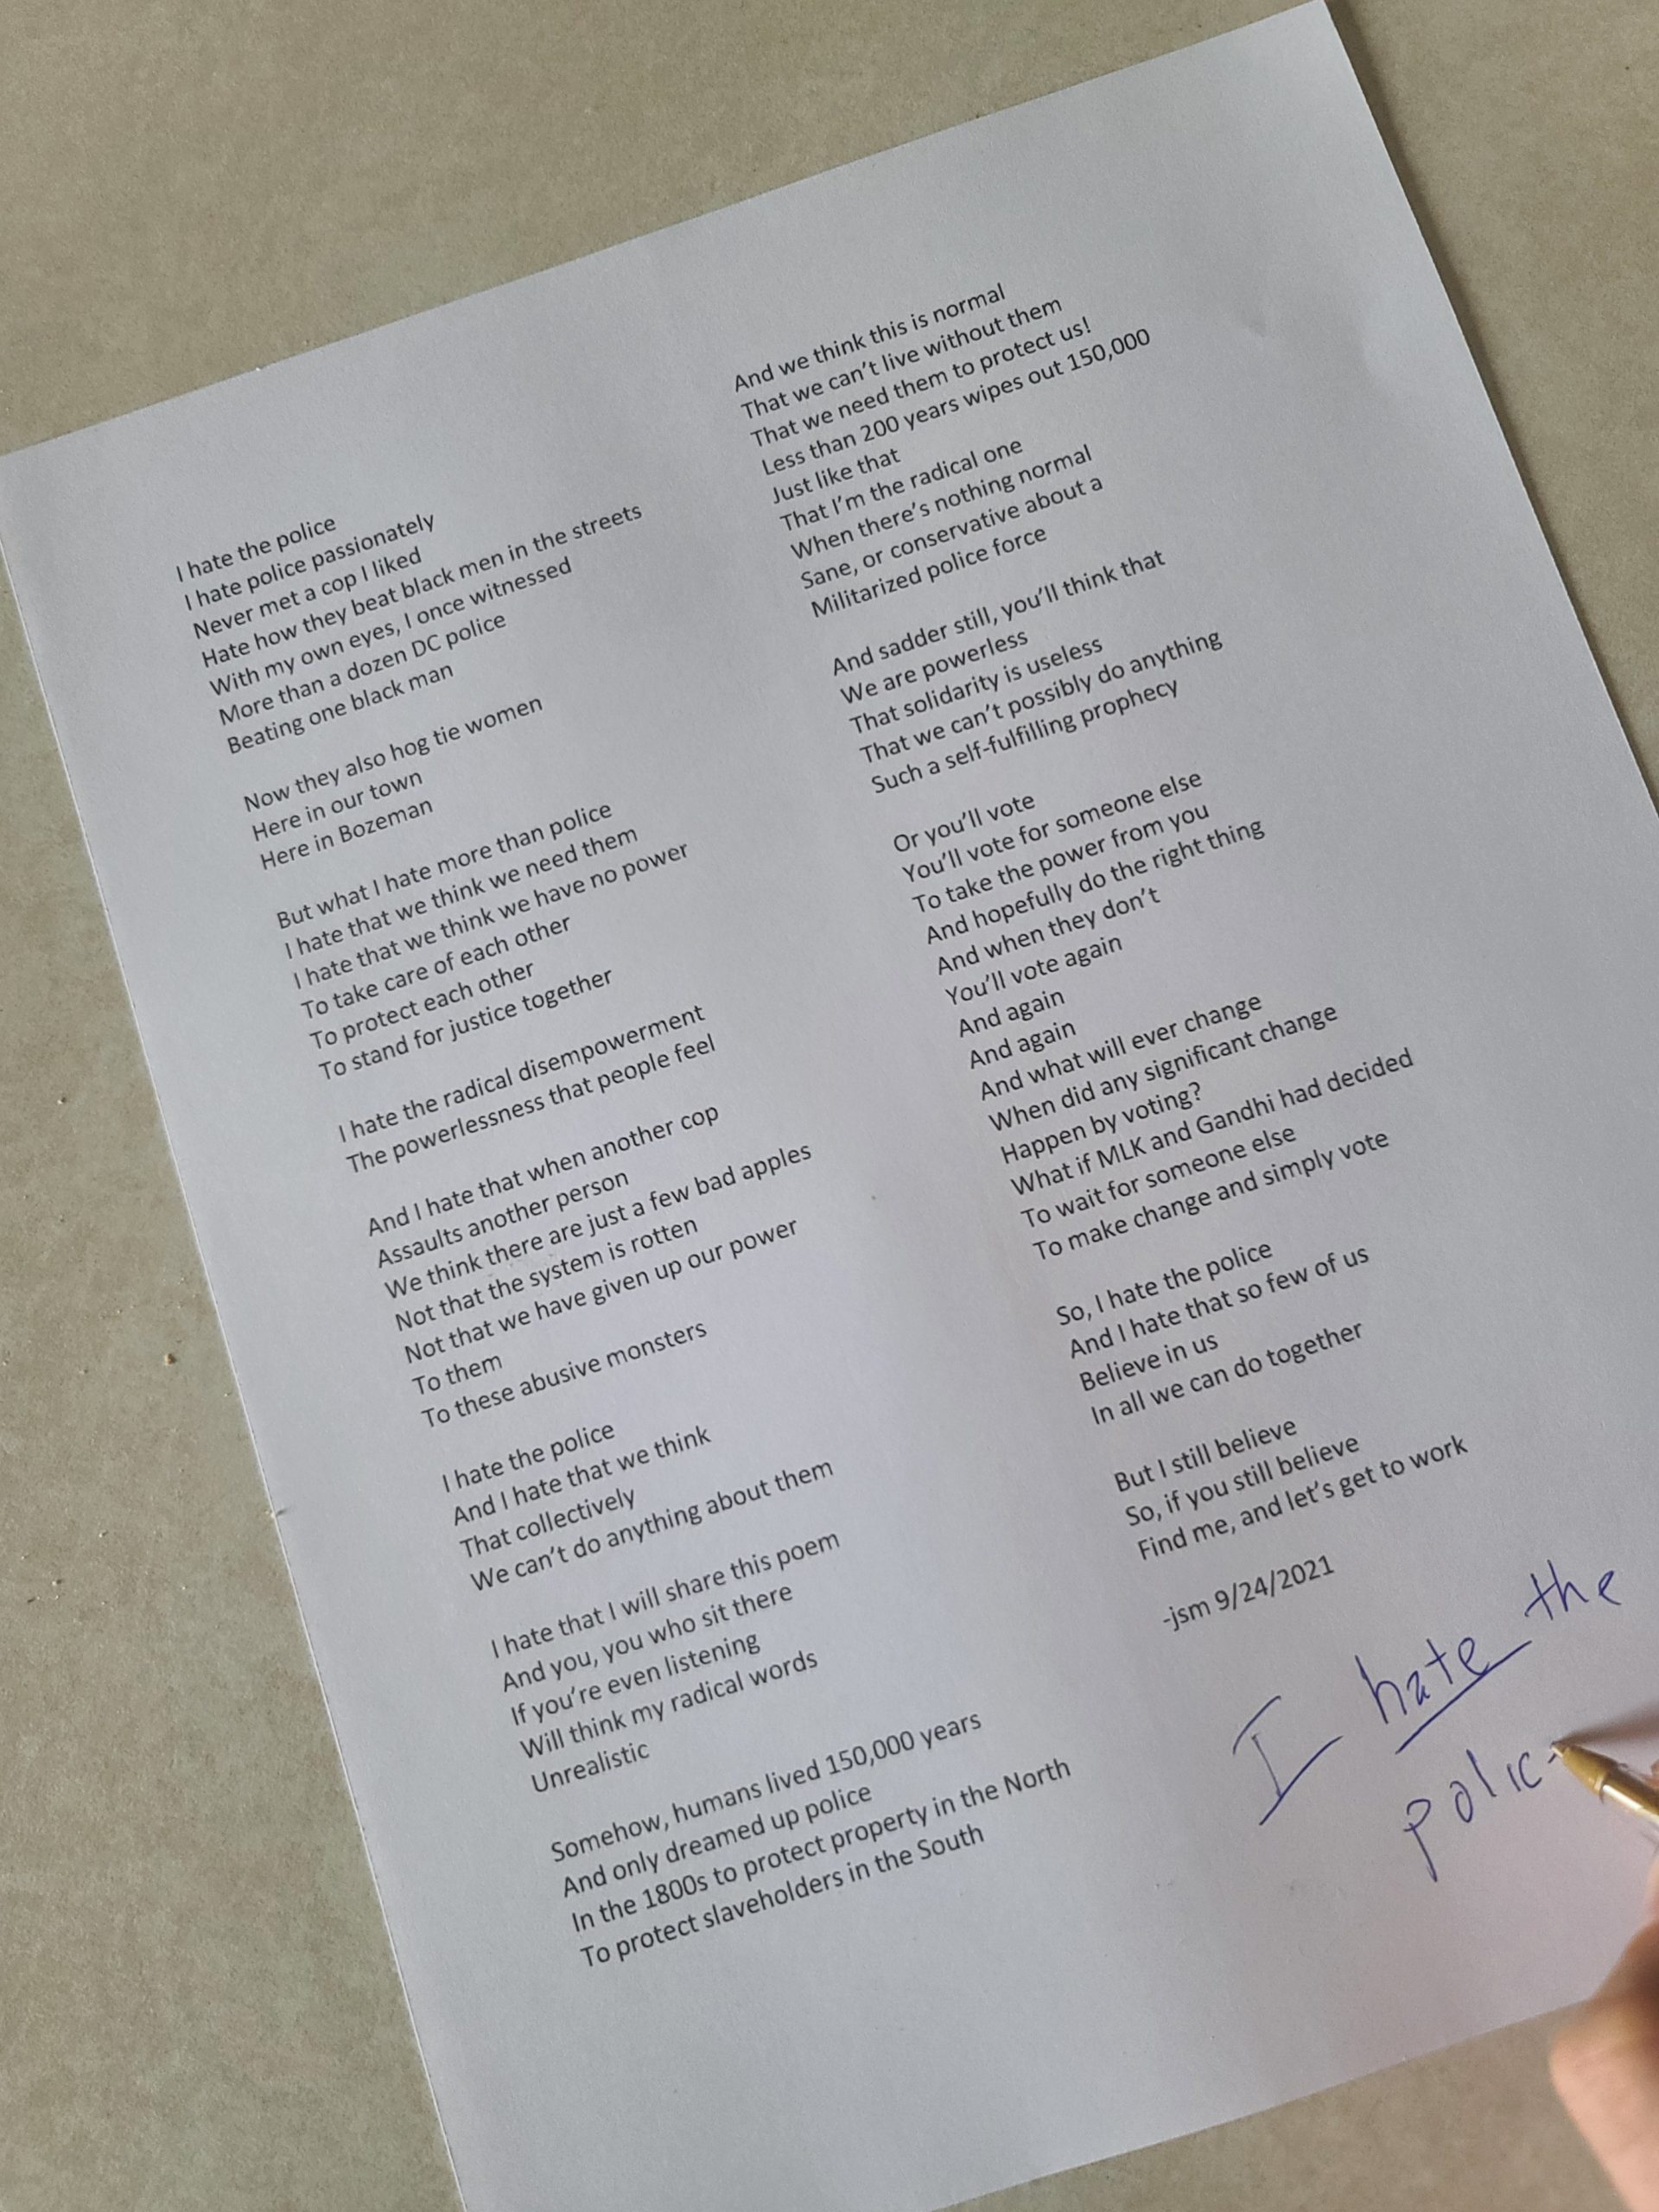 I hate the police
I hate police passionately
Never met a cop I liked
Hate how they beat black men in the streets
With my own eyes, I once witnessed
More than a dozen DC police
Beating one black man
Now they also hog tie women
Here in our town
Here in Bozeman
But what I hate more than police
I hate that we think we need them
I hate that we think we have no power
To take care of each other
To protect each other
To stand for justice together
I hate the radical disempowerment
The powerlessness that people feel
And I hate that when another cop
Assaults another person
We think there are just a few bad apples
Not that the system is rotten
Not that we have given up our power
To them
To these abusive monsters
I hate the police
And I hate that we think
That collectively
We can't do anything about them
I hate that I will share this poem
And you, you who sit there
If you're even listening
Will think my radical words
Unrealistic
Somehow, humans lived 150,000 years
And only dreamed up police
In the 1800s to protect property in the North
To protect slaveholders in the South
And we think this is normal
That we can't live without them
That we need them to protect us!
Less than 200 years wipes out 150,000
Just like that
That I'm the radical one
When there's nothing normal
Sane, or conservative about a
Militarized police force
And sadder still, you'll think that
We are powerless
That solidarity is useless
That we can't possibly do anything
Such a self-fulfilling prophecy
Or you'll vote
You'll vote for someone else
To take the power from you
And hopefully do the right thing
And when they don't
You'll vote again
And again
And again
And what will ever change
When did any significant change
Happen by voting?
What if MLK and Gandhi had decided
To wait for someone else
To make change and simply vote
So, I hate the police
And I hate that so few of us
Believe in us
In all we can do together
But I still believe
So, if you still believe
Find me, and let's get to work
-jsm 9/24/2021
I hate the
polic